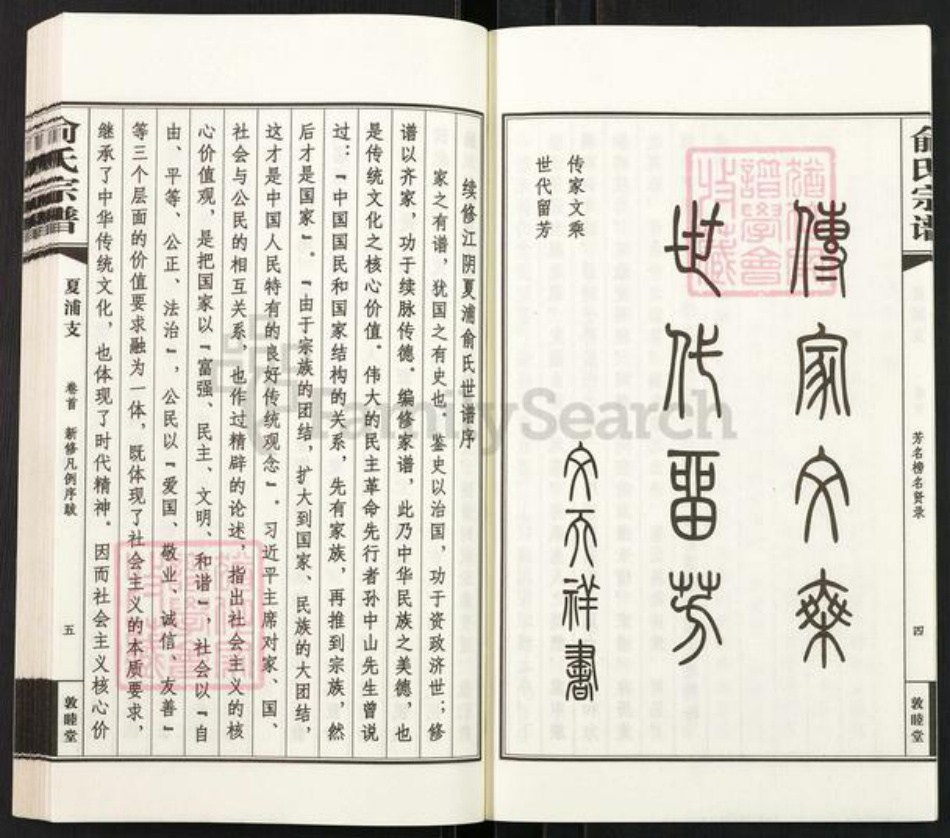 俞氏宗谱
芳名榜名贤录
四
敦睦堂
傳家文藥
世代畱芳
文天祥書
传家文乘
世代留芳
续修江阴夏浦俞氏世谱序
家之有谱，犹国之有史也。鉴史以治国，功于资政济世；修
谱以齐家，功于续脉传德。编修家谱，此乃中华民族之美德，也
是传统文化之核心价值。伟大的民主革命先行者孙中山先生曾说
过：『中国国民和国家结构的关系，先有家族，再推到宗族，然
后才是国家』。『由于宗族的团结，扩大到国家、民族的大团结，
这才是中国人民特有的良好传统观念』。习近平主席对家、国、
社会与公民的相互关系，也作过精辟的论述，指出社会主义的核
心价值观，是把国家以『富强、民主、文明、和谐』，社会以『自
由、平等、公正、法治』，公民以『爱国、敬业、诚信、友善』
等三个层面的价值要求融为一体，既体现了社会主义的本质要求，
继承了中华传统文化，也体现了时代精神。因而社会主义核心价
俞氏宗谱
夏浦支
卷首 新修凡例序跋
五
敦睦堂
FamilySearch